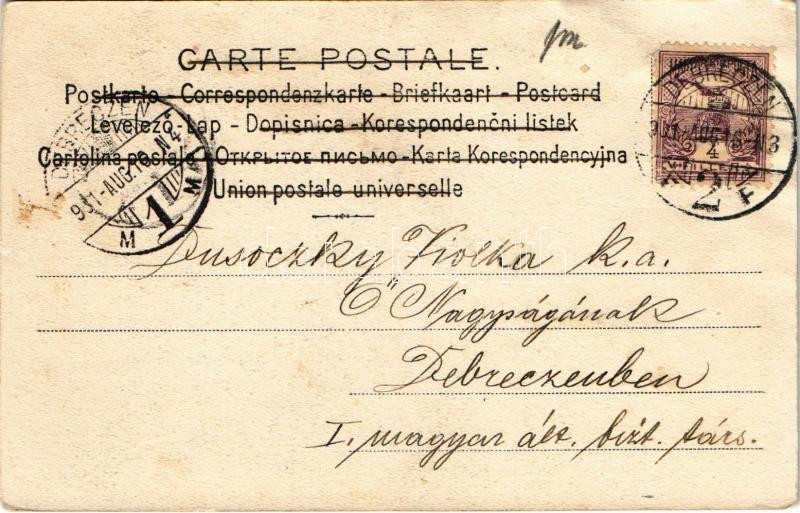 CARTE POSTALE.
Postkarte - Correspondenzkarte - Briefkaart - Postcard
Levelező-Lap - Dopisnica - Korespondenční listek
Cartolina postale - Открытое письмо - Karta Korespondencyjna
Union postale universelle
DEBRECZEN
911-AUG.16.N4
M 1
DEBRECZEN
911-AUG.16
2
Dusoczky Violka k.a.
Ő Nagyságának
Debreczenben
I. magyar ált. bizt. társ.